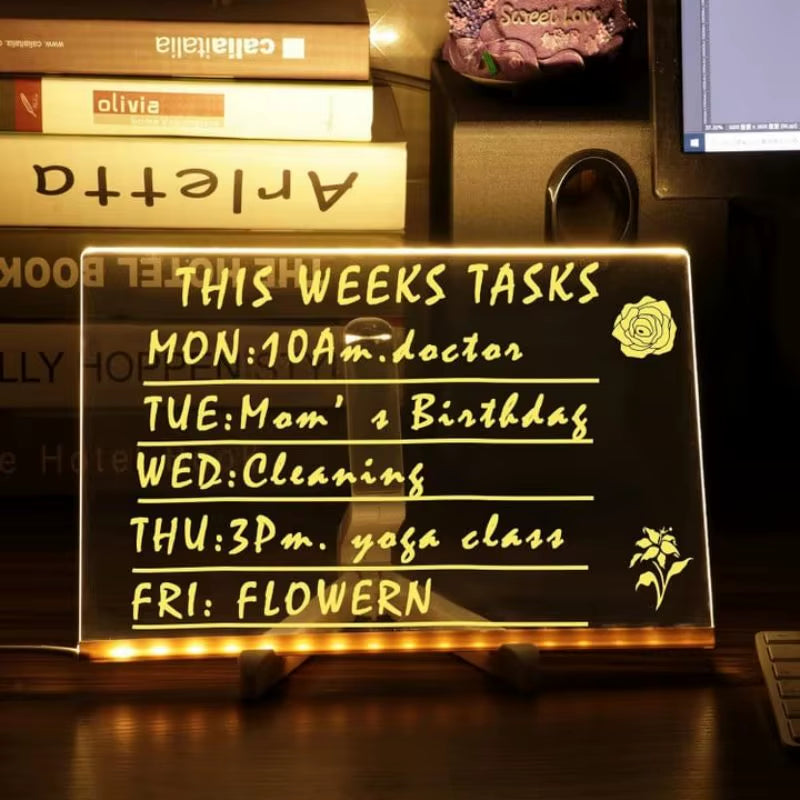 www.caliaitalia.com
caliaitalia
olivia
Arletta
THE HOTEL BOOK
LLY HOPPEN STY
Sweet Love
THIS WEEKS TASKS
MON:10Am.doctor
TUE:Mom's Birthday
WED:Cleaning
THU:3Pm. yoga class
FRI: FLOWERN